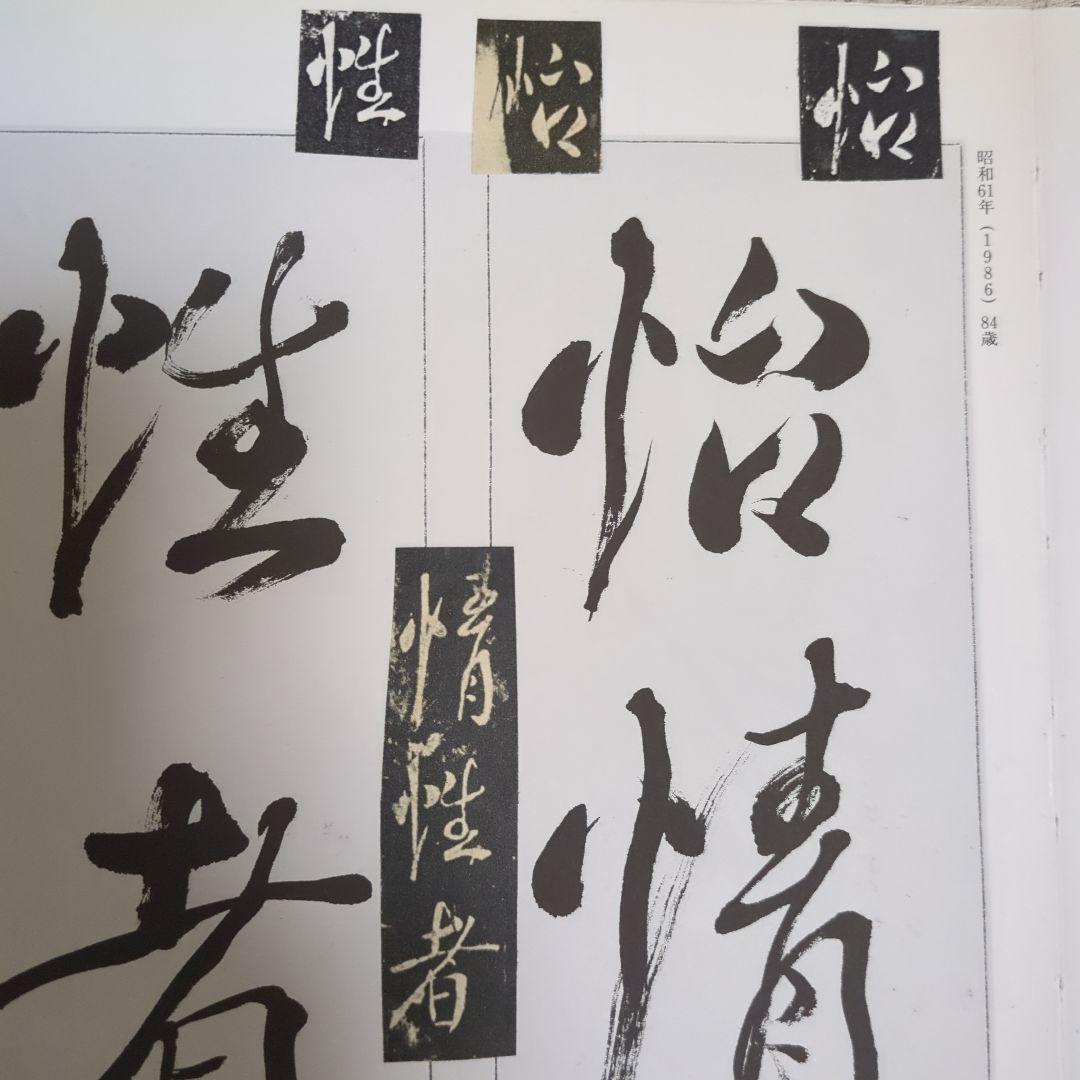 昭和61年(1986) 84歳
怡
怡
性
怡情
情性者
性者